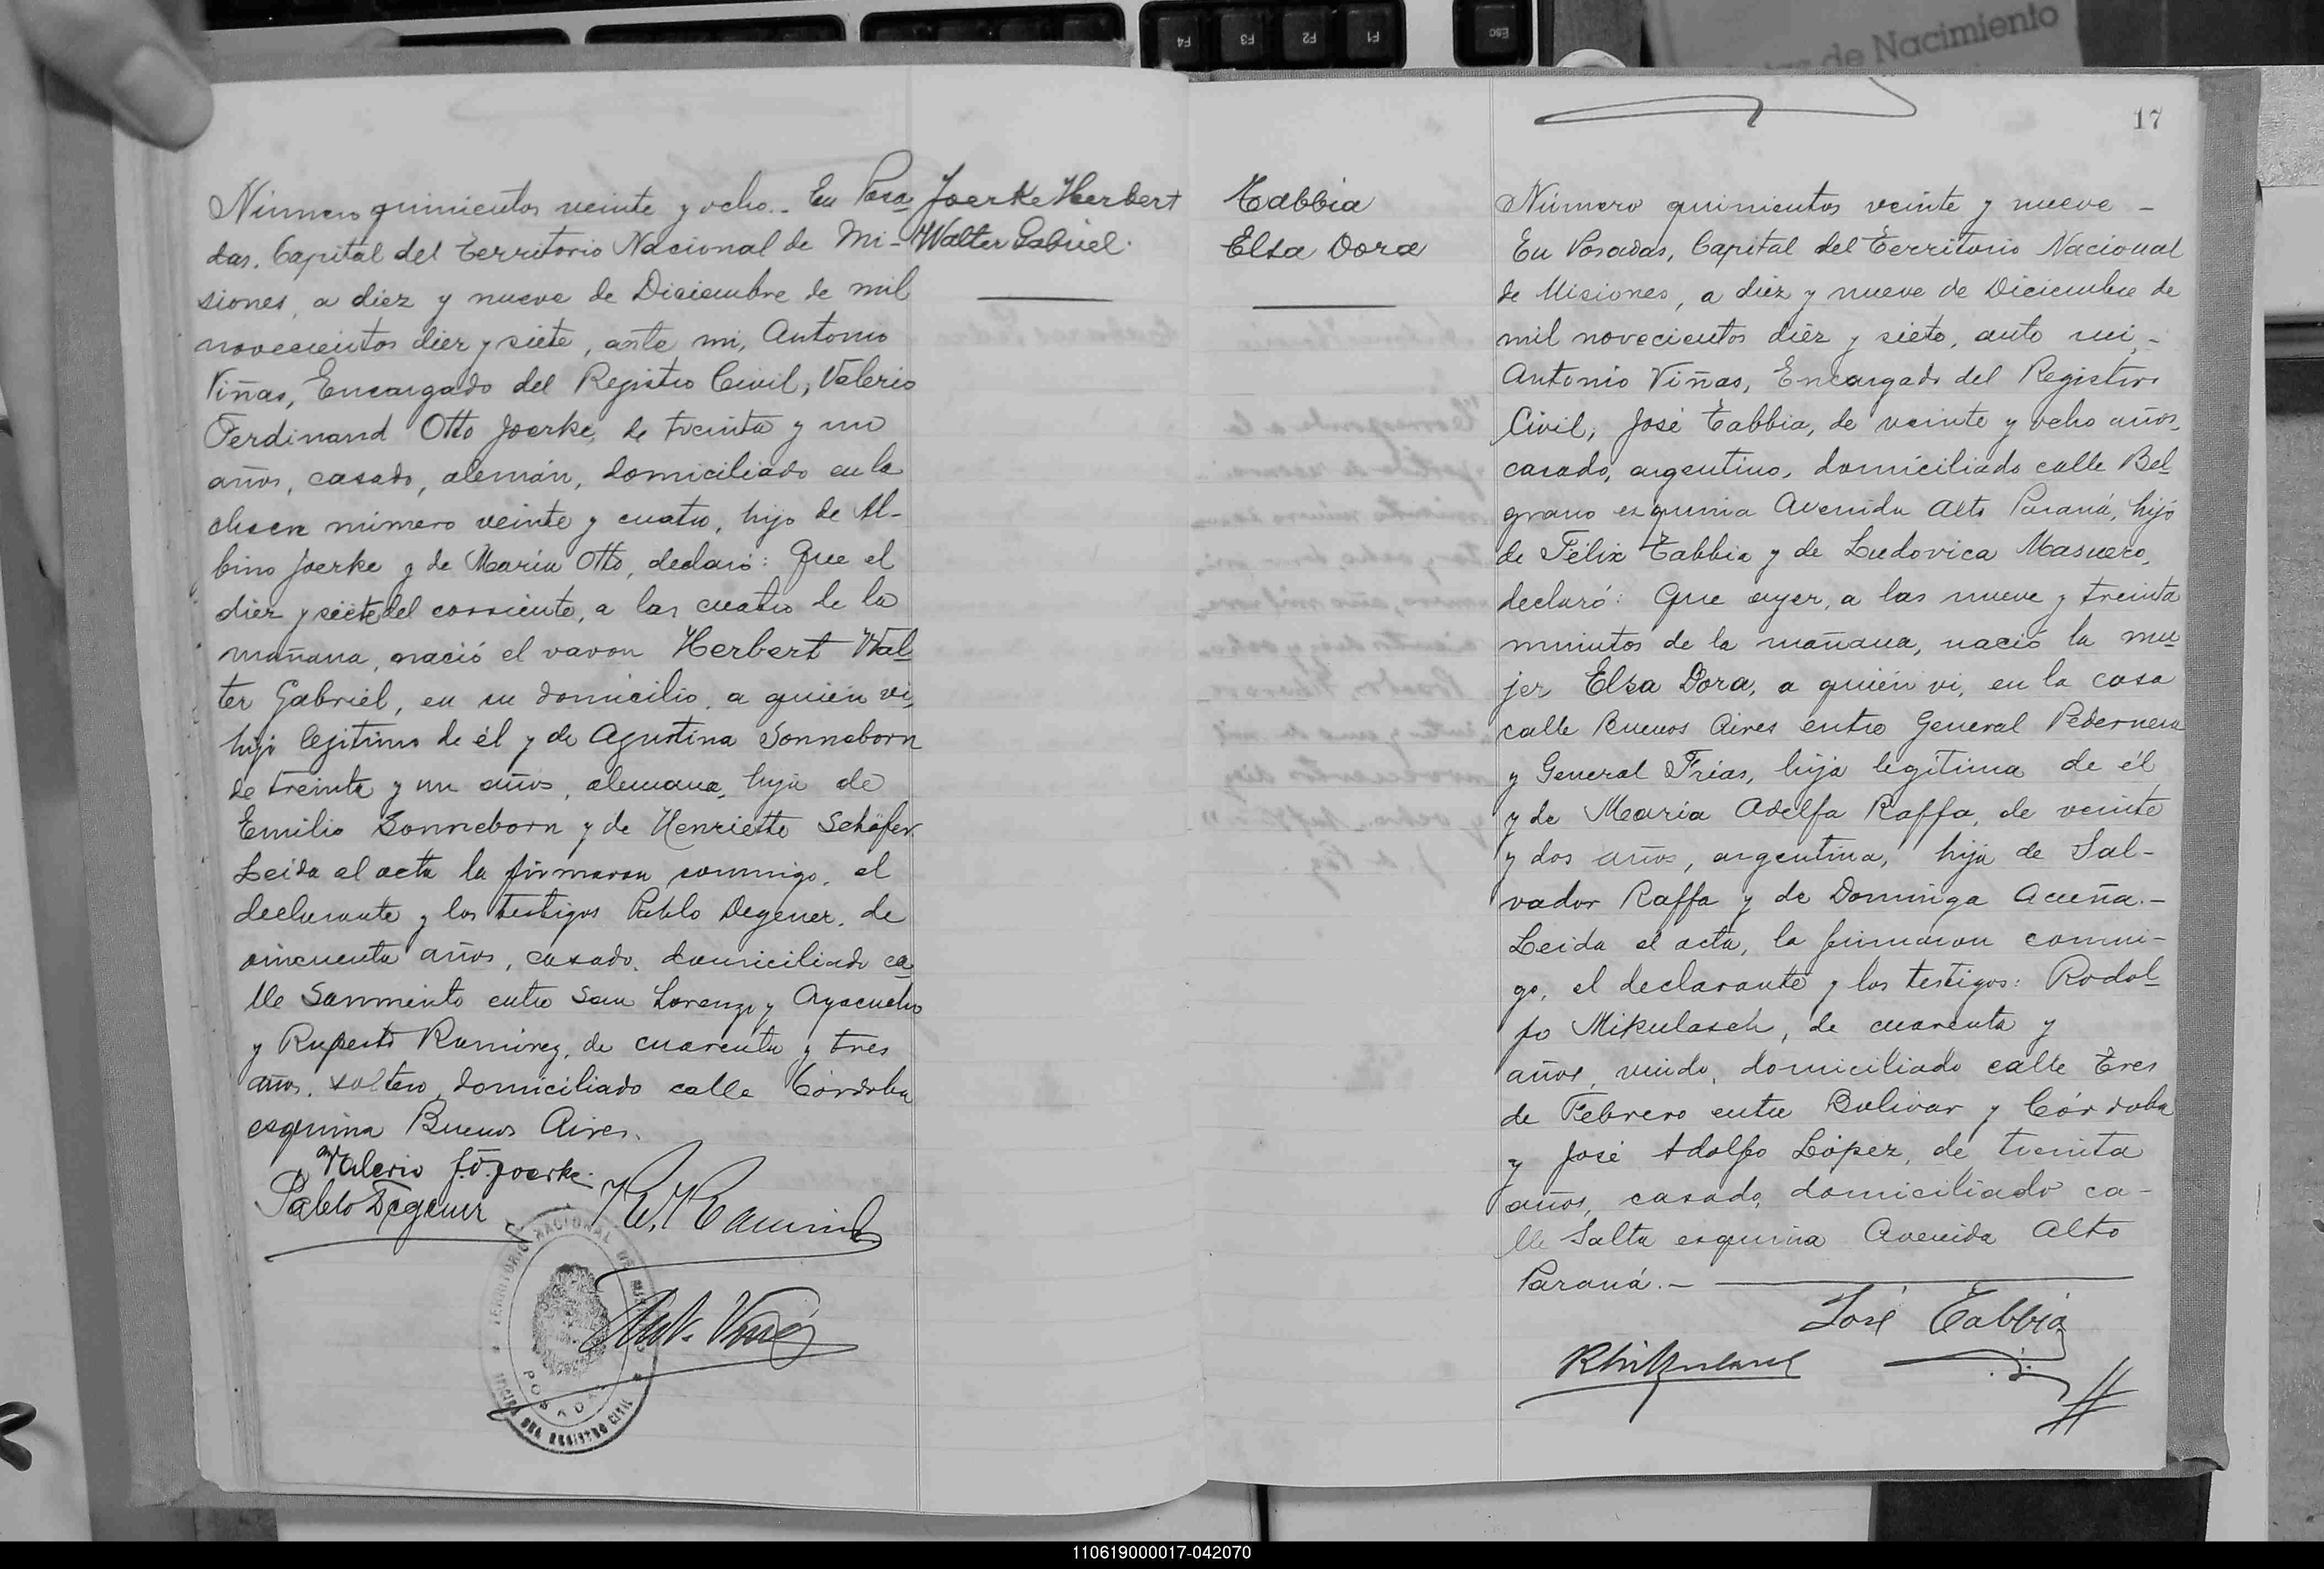 F4 F3 F2 F1 Esc
de Nacimiento
Número quinientos veinte y ocho.. En Posa
das, Capital del Territorio Nacional de Mi-
siones, a diez y nueve de Diciembre de mil
novecientos diez y siete, ante mi, Antonio
Viñas, Encargado del Registro Civil, Valerio
Ferdinand Otto Joerke, de treinta y un
años, casado, alemán, domiciliado en la
chacra número veinte y cuatro, hijo de Al-
bino Joerke y de María Otto, declaró: Que el
diez y siete del corriente, a las cuatro de la
mañana, nació el varon Herbert Wal
ter Gabriel, en su domicilio, a quien vi,
hijo legítimo de él y de Agustina Sonneborn
de treinta y un años, alemana, hija de
Emilio Sonneborn y de Henriette Schäfer.
Leida el acta la firmaron conmigo, el
declarante y los testigos Pablo Degener, de
cincuenta años, casado, domiciliado ca
lle Sarmiento entre San Lorenzo y Ayacucho
y Ruperto Ramirez, de cuarenta y tres
años, soltero, domiciliado calle Córdoba
esquina Buenos Aires.
Valerio F.O. Joerke.
Pablo Degener
R. Ramirez
TERRITORIO NACIONAL DE MISIONES
POSADAS
REGISTRO CIVIL
Ant. Viñas
Joerke Herbert
Walter Gabriel.
Tabbia
Elsa Dora
17
Número quinientos veinte y nueve -
En Posadas, Capital del Territorio Nacional
de Misiones, a diez y nueve de Diciembre de
mil novecientos diez y siete, ante mi, -
Antonio Viñas, Encargado del Registro
Civil, José Tabbia, de veinte y ocho años,
casado, argentino, domiciliado calle Bel
grano esquina Avenida Alto Paraná, hijo
de Félix Tabbia y de Ludovica Masuero,
declaró: Que ayer, a las nueve y treinta
minutos de la mañana, nació la mu
jer Elsa Dora, a quién vi, en la casa
calle Buenos Aires entre General Pedernera
y General Frías, hija legítima de él
y de María Adelfa Raffa, de veinte
y dos años, argentina, hija de Sal-
vador Raffa y de Dominga Acuña.-
Leida el acta, la firmaron conmi-
go, el declarante y los testigos: Rodol
fo Mikulasch, de cuarenta y
años, viudo, domiciliado calle Tres
de Febrero entre Bolivar y Córdoba
y José Adolfo López, de treinta
años, casado, domiciliado ca-
lle Salta esquina Avenida Alto
Paraná.-
José Tabbia
R Mikulasch
110619000017-042070